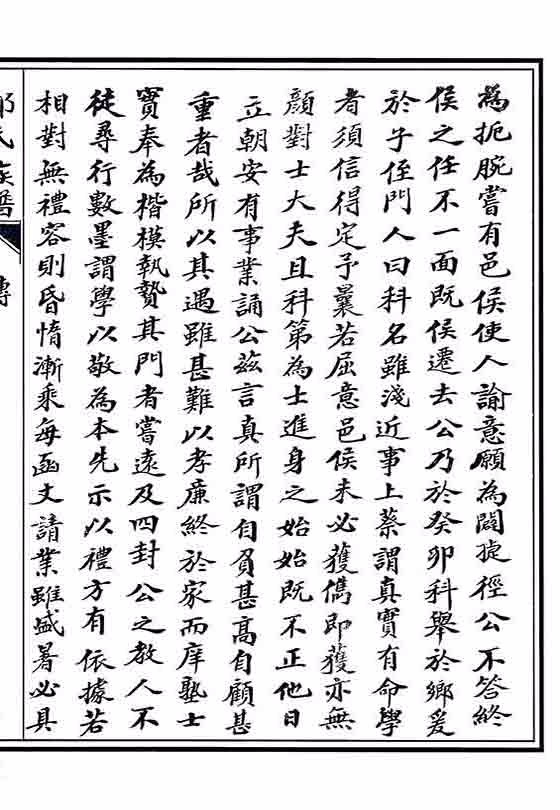 為扼腕嘗有邑侯使人諭意願為闢捷徑公不答終
侯之任不一面既侯遷去公乃於癸卯科舉於鄉爰
於子侄門人曰科名雖淺近事上蔡謂真實有命學
者須信得定予曩若屈意邑侯未必獲儁即獲亦無
顏對士大夫且科第為士進身之始始既不正他日
立朝安有事業誦公茲言真所謂自負甚高自顧甚
重者哉所以其遇雖甚難以孝廉終於家而庠塾士
實奉為楷模執贄其門者嘗遠及四封公之教人不
徒尋行數墨謂學以敬為本先示以禮方有依據若
相對無禮容則昏惰漸乘每函丈請業雖盛暑必具
氏族譜
傳